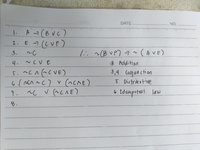 DATE NO
1. A → (B ∨ C)
2. E → (C ∨ P)
3. ~C /∴ ~(B ∨ P) → ~(A ∨ E)
4. ~C ∨ E 3 Addition
5. ~C ∧ (~C ∨ E) 3,4 Conjunction
6. (~C ∧ ~C) ∨ (~C ∧ E) 5 Distributive
7. ~C ∨ (~C ∧ E) 6 Idempotent law
8.